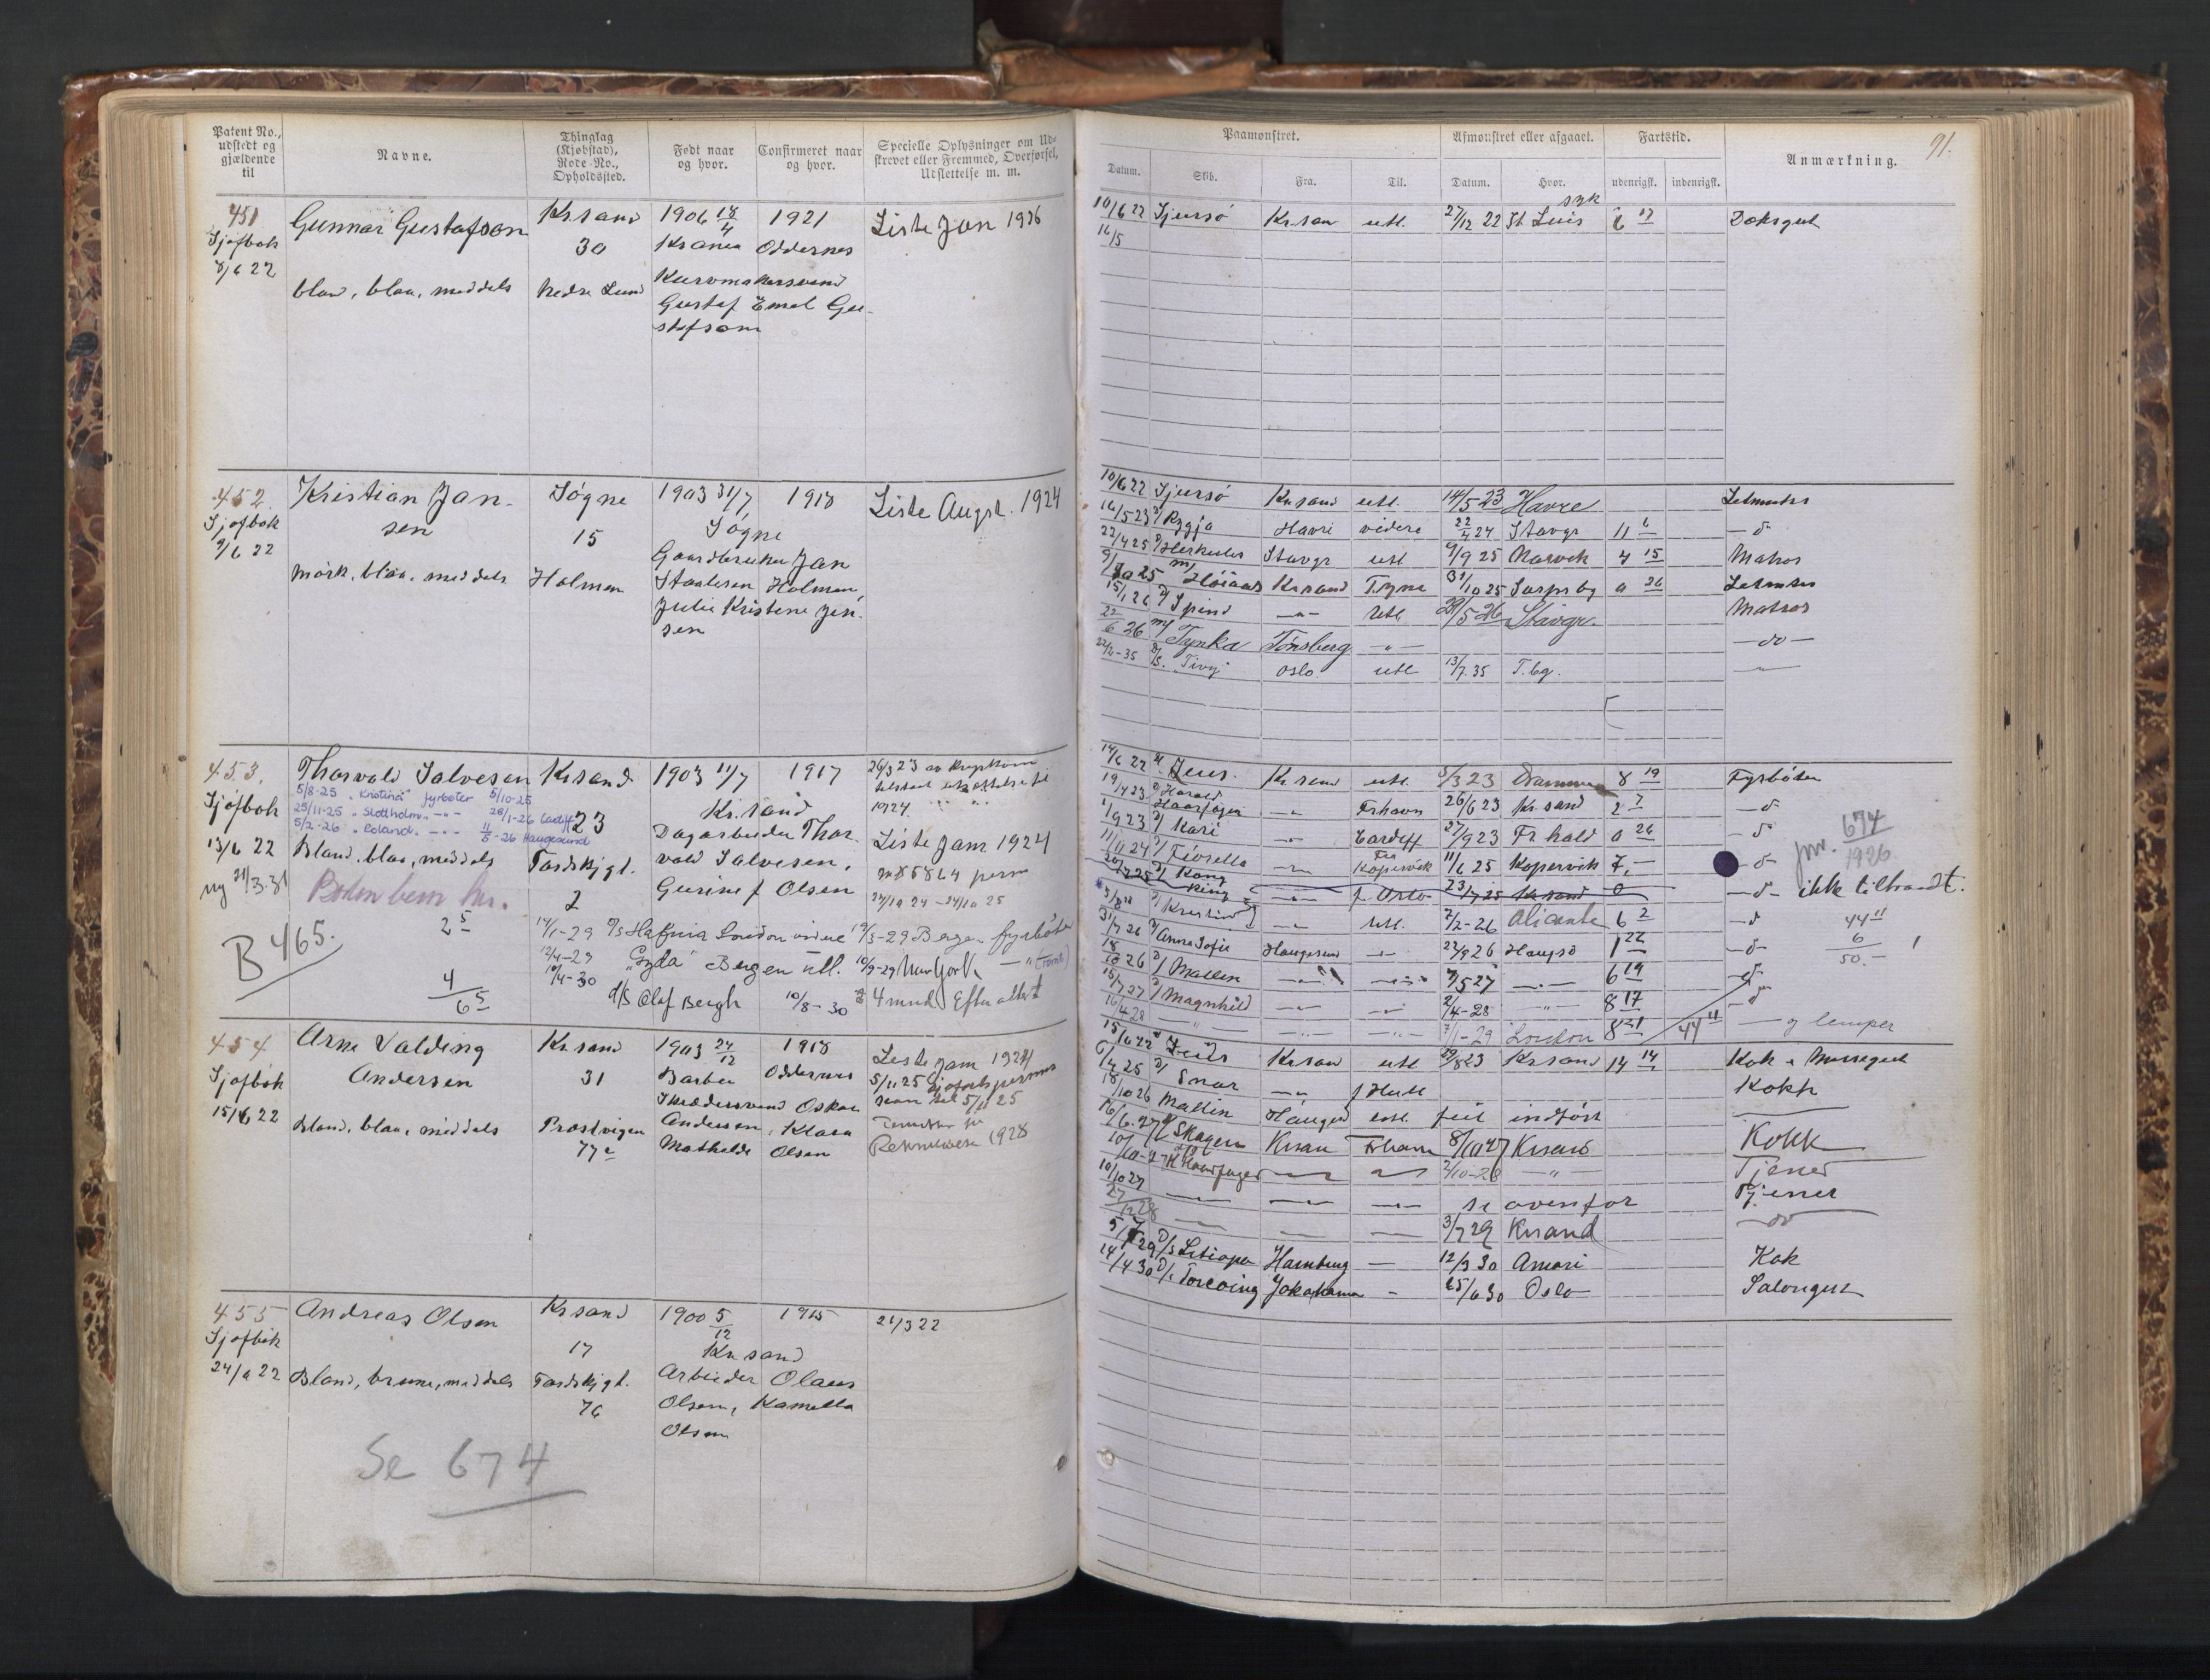 Patent No., udstedt og gjældende til
Navne.
Thinglag (Kjøbstad), Rode-No., Opholdssted.
Født naar og hvor.
Confirmeret naar og hvor.
Specielle Oplysninger om Udskrevet eller Fremmed, Overførsel, Udslettelse m. m.
451 Gunnar Gustafson Kr.sand 1906 18/4 1921 Liste Jan 1926
Sjøfbok 30 Oddernes
8/6 22
bland, blaa, middels Nedre Lund
Gustaf Emil Gu-
stafson
452. Kristian Jan- Søgne 1903 31/7 1918 Liste Augst. 1924
Sjøfbok sen 15 Søgne
9/6 22 Gaardbruker Jan
mørk, blaa, middels Holmen Staalesen Holmen,
Julie Kristine Jen-
sen
453. Thorvald Salvesen Kr.sand 1903 11/7 1917
5/8-25 "Kristina" fyrbøter 5/10-25
Sjøfbok 25/11-25 "Slottholm" -"- 28/1-26 Cardiff 23 Kr.sand 1924
5/2-26 "Roland" -"- 11/5-26 Haugesund
13/6 22 Dagarbeider Thor- Liste Jan 1924
Bland, blaa, middels Tordskjgt. vald Salvesen,
ny 21/3.31 2 Gurine f Olsen 24/10 24 - 24/10 25
B 465. 2 5
14/1-29 D/S Hafnia London videre 12/3-29 Bergen fyrbøter
12/4-29 "Gyda" Bergen utl. 10/9-29 New York
4 10/4-30
6 5 D/S Olaf Bergh 10/8-30 4 mnd
454 Arne Valding Kr.sand 1903 24/12 1918 Liste Jan 1924
Sjøfbok Andersen 31 Barber Oddernes 5/11 25
15/6 22 Skræddersvend Oskar
Bland, blaa, middels Prostvigen Andersen, Klara
77 a Mathilde Olsen 1928
455 Andreas Olsen Kr.sand 1900 5/12 1915 21/3 22
Sjøfbok 17 Kr.sand
Arbeider Olaus
Bland, brune, middels Tordskjgt. Olsen, Kamilla
76 Olsen
Se 674
91.
Paamønstret.
Afmønstret eller afgaaet.
Fartstid.
Anmærkning.
Datum. Skib. Fra. Til. Datum. Hvor. udenrigsk. indenrigsk.
10/6 22 Sjursø Kr.san utl. 27/12 22 St Luis syk 6 17 Dæksgut
16/5
10/6 22 Sjursø Kr.sand utl. 14/5 23 Havre Letmatros
16/5 23 D/ Rygja Havre videre 22/4 24 Stavgr 11 6 - d
22/4 25 D/ Herkules Stavgr utl 9/9 25 Narvik 4 15 Matros
Kr.sand Tyne 31/10 25 Sarpsbg 0 26 Letmatros
15/1 26 D/ Spind -"- utl 29/5 26 Stavgr. Matros
22/6 26 M/ Tynka Tønsberg -"- - do -
D/S. "Tivy" Oslo utl 13/7.35 T.bg.
14/6 22 Kr.sand utl. 5/3 23 Drammen 8 19 Fyrbøter
19/4 23 D/ Harald Haarfager -"- Frhavn 26/6 23 Kr.sand 2 7 - d
1/9 23 D/ Kari -"- Cardiff 27/9 23 Fr.hald 0 26 - d
11/11 24 D/ Fiorella -"- Fra Kopervik 11/6 25 Kopervik 7.- - d - jvn. 674/1926
D/ Kong Ring -"- f. Oslo 23/7 25 Kr.sand 0 - d - ikke tiltraadt.
D/ Kristina -"- utl. 2/2-26 Alicante 6 2 - d 44 11
31/7 26 D/ Anna Sofie Haugesund -"- 22/9 26 Haugsd 1 22 - d - 6
18/10 26 D/ Mallin -"- 9/5 27 -"- 6 19 50.-
15/7 27 D/ Magnhild -"- -"- 2/4-28 -"- 8 17
16/4 28 -"- -"- -"- 7/1-29 London 8 21 44 11 - og lemper
15/6 22 Kr.san utl 29/8 23 Kr.sand 14 14 Kok & Messegut
6/4 25 D/ Snar -"- f Hull Kokk
18/10 26 Mallin Haugsd utl. feil indført
16/6-27 D/ Skagen Kr.san Frhavn 8/10 27 Kr.sand Kokk
10/10-27 H Haarfager -"- -"- 2/10-28 -"- Tjener
10/10 27 -"- -"- -"- se ovenfor Tjener
27/12 28 3/7 29 Kr.sand - do
Hamburg - 12/3 30 Kok
14/4 30 D/S Jokohama - 25/6 30 Oslo Salongut